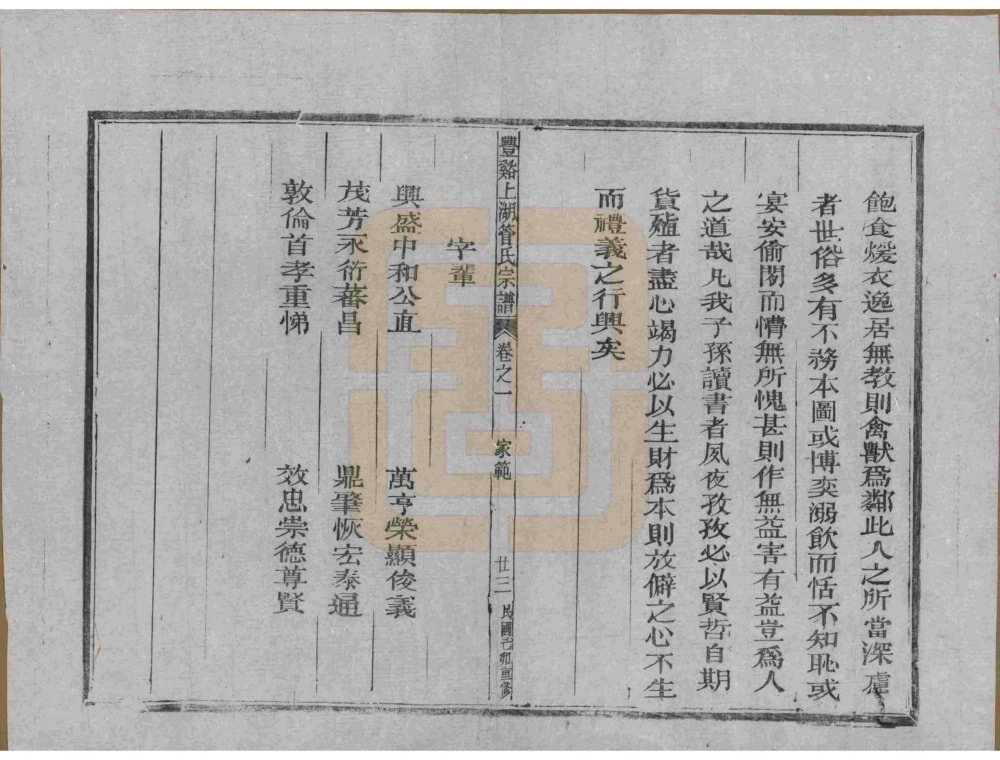 飽食煖衣逸居無教則禽獸爲鄰此人之所當深慮
者世俗多有不務本圖或博奕溺飲而恬不知恥或
宴安偷閣而懵無所愧甚則作無益害有益豈爲人
之道哉凡我子孫讀書者夙夜孜孜必以賢哲自期
貨殖者盡心竭力必以生財爲本則放僻之心不生
而禮義之行興矣
豐谿上湖管氏宗譜 卷之一 家範 廿三 民國己卯重修
字輩
興盛中和公直 萬亨榮顯俊義
茂芳永衍蕃昌 鼎肇恢宏泰通
敦倫首孝重悌 效忠崇德尊賢